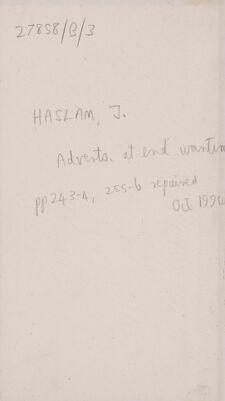 27858/B/3
HASLAM, J.
Adverts. at end wantin
pp 243-4, 255-6 repaired
Oct 199